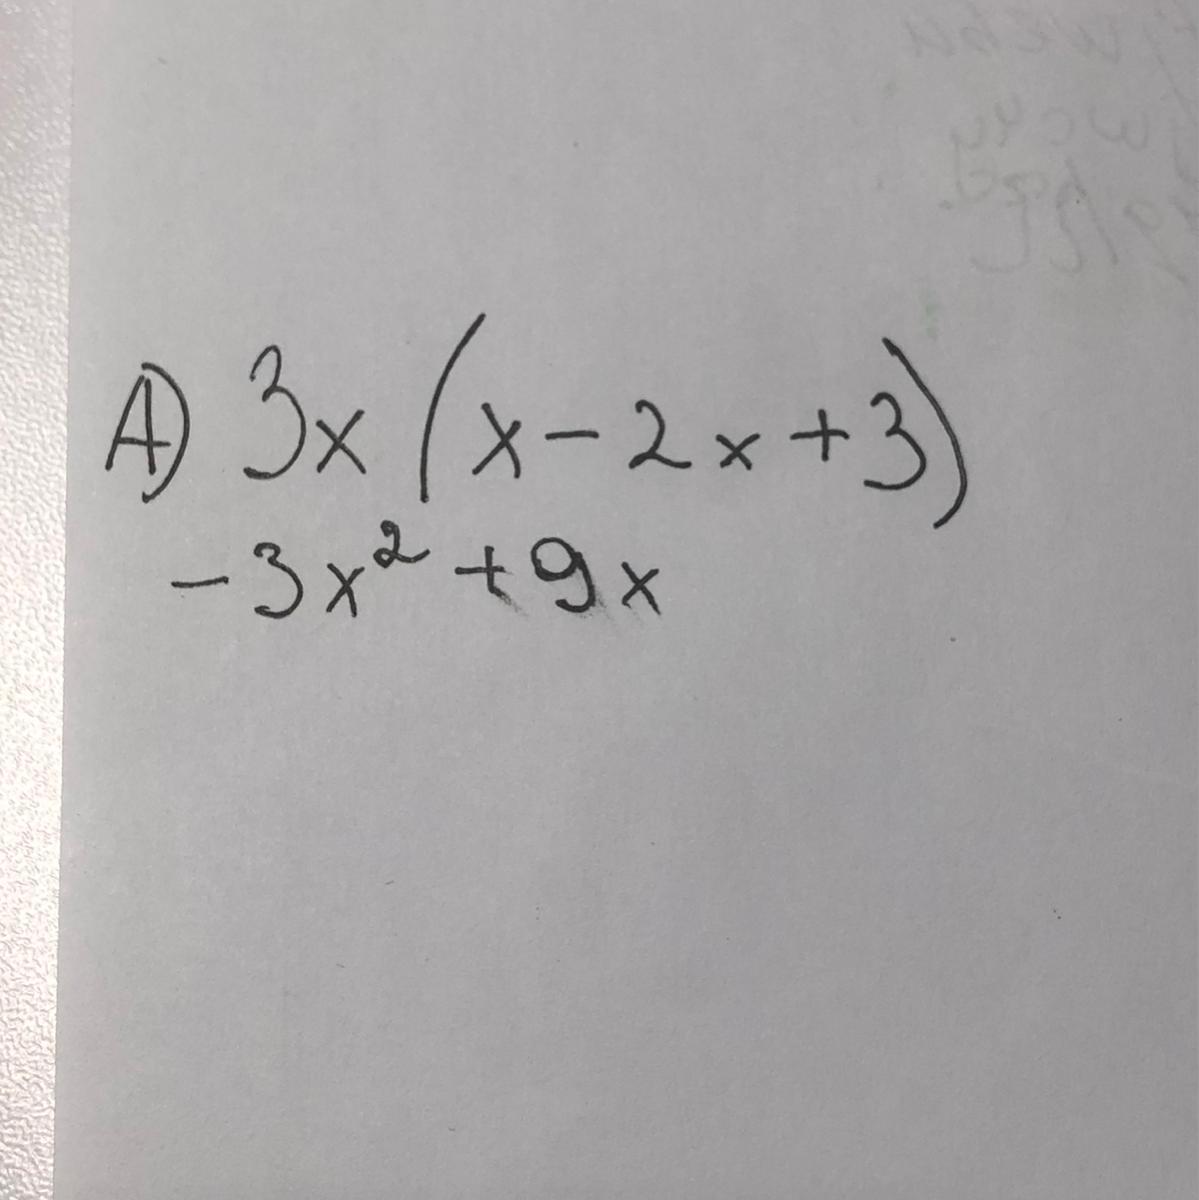 A) 3x (x - 2x + 3)
- 3x² + 9x